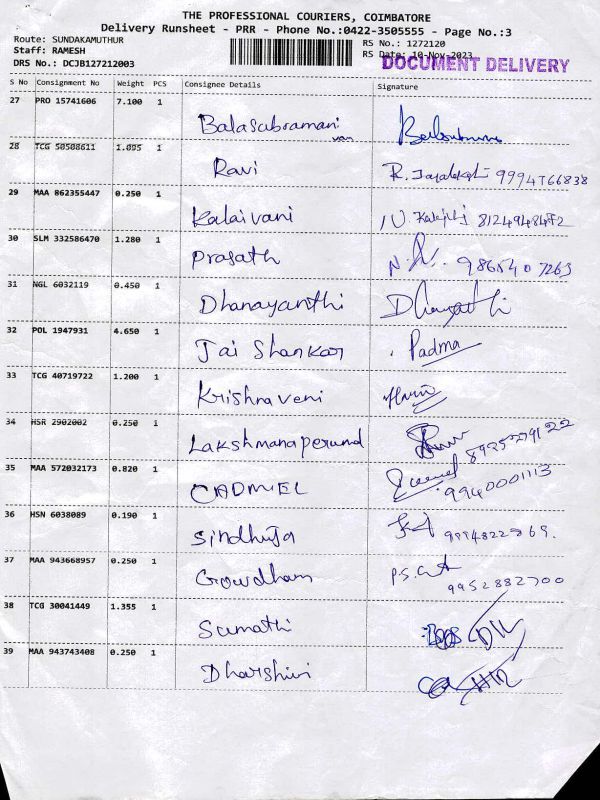 THE PROFESSIONAL COURIERS, COIMBATORE
Delivery Runsheet - PRR - Phone No.:0422-3505555 - Page No.:3
Route: SUNDAKAMUTHUR
RS No.: 1272120
Staff: RAMESH
RS Date: 10-Nov-2023
DRS No.: DCJB127212003
DOCUMENT DELIVERY
S No Consignment No Weight PCS Consignee Details Signature
27 PRO 15741606 7.100 1 Balasubramani
28 TCG 50508611 1.095 1 Ravi 9994766838
29 MAA 862355447 0.250 1 Kalaivani 8124948472
30 SLM 332586470 1.280 1 Prasath 9865407263
31 NGL 6032119 0.450 1 Dhanayanthi
32 POL 1947931 4.650 1 Jai Shankar Padma
33 TCG 40719722 1.200 1 Krishnaveni
34 HSR 2902002 0.250 1 Lakshmanaperumal
35 MAA 572032173 0.820 1 CADMIEL 9940001113
36 HSN 6038089 0.190 1 Sindhuja
37 MAA 943668957 0.250 1 Gowdham 9952882700
38 TCG 30041449 1.355 1 Sumathi
39 MAA 943743408 0.250 1 Dharshini